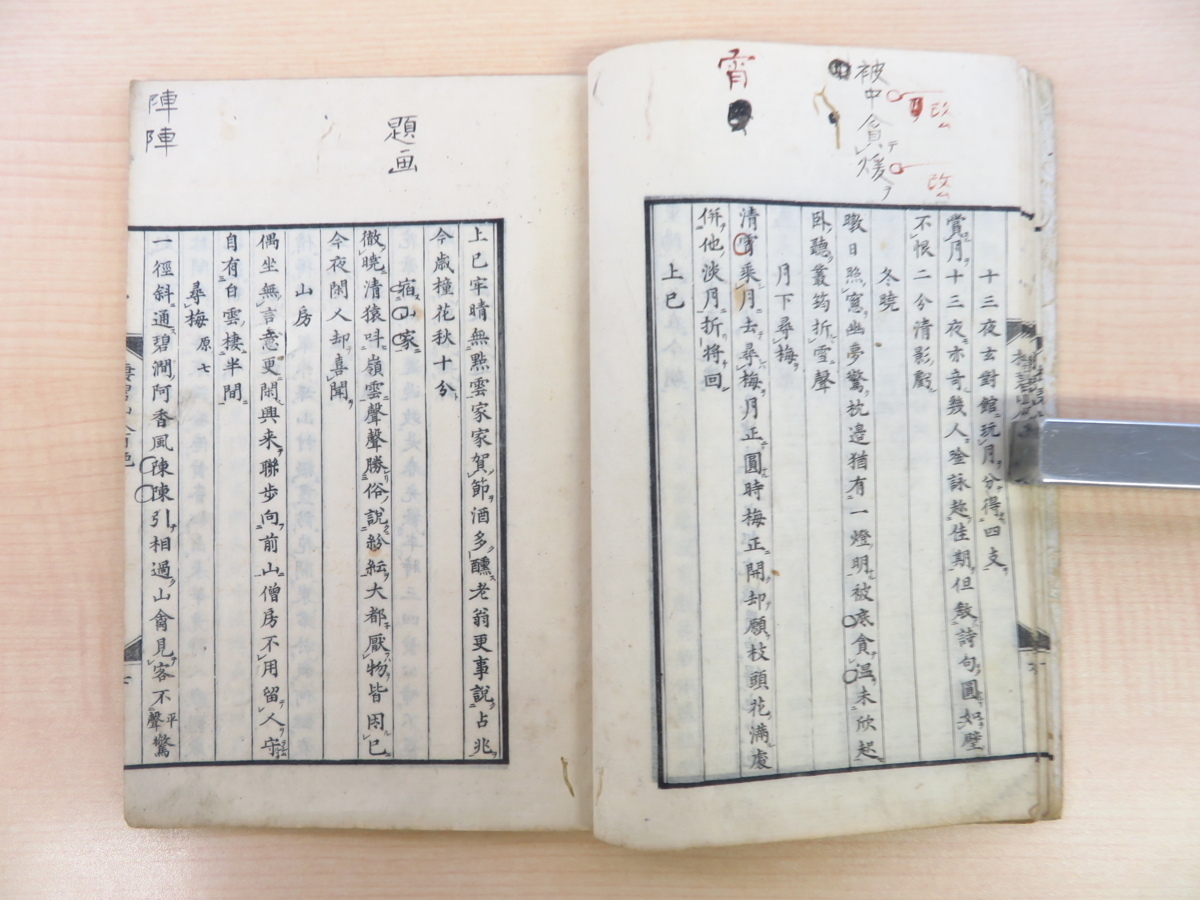 宵
被中貪煖ヲ
改
改
十三夜玄對館玩月分得四支
賞月十三夜亦奇幾人吟詠趁佳期但敎詩句圓如璧
不恨二分清影虧
冬曉
暾日照窓幽夢驚枕邉猶有一燈明被底貪温未欣起
臥聽叢筠折雪聲
月下尋梅
清霄乘月去尋梅月正圓時梅正開却願枝頭花滿處
併他淡月折將回
上巳
題画
陣陣
上巳牢晴無點雲家家賀節酒多醺老翁更事説占兆
今歳橦花秋十分
宿山家
徹曉清猿呌嶺雲聲聲勝俗説紛紜大都厭物皆因已
今夜閑人却喜聞
偶坐無言意更閑興来聯歩向前山僧房不用留人守
山房
自有白雲棲半間
尋梅 原七
一徑斜通碧澗阿香風陳陳引相過山禽見客不平聲驚